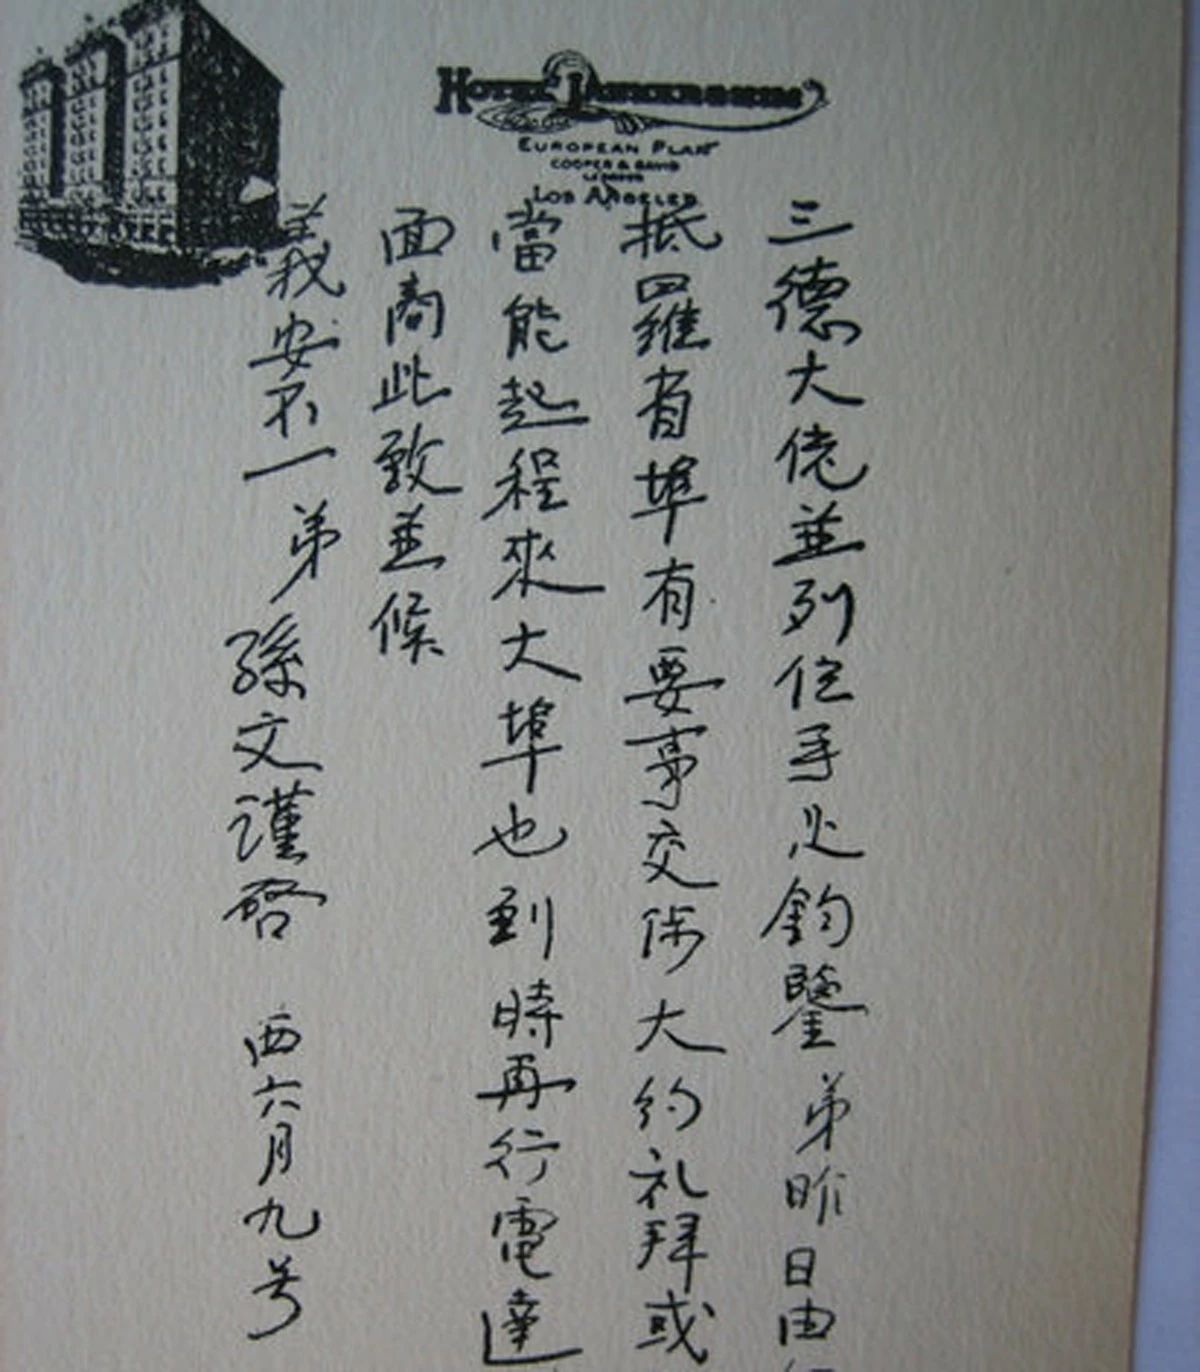 HOTEL LANKERSHIM
EUROPEAN PLAN
COOPER & DAVIS
LESSEES
LOS ANGELES
三德大佬並列位手足鈞鑒弟昨日由
抵羅省埠有要事交涉大約礼拜或
當能起程來大埠也到時再行電達
面商此致並候
義安不一弟孫文謹啓 西六月九号